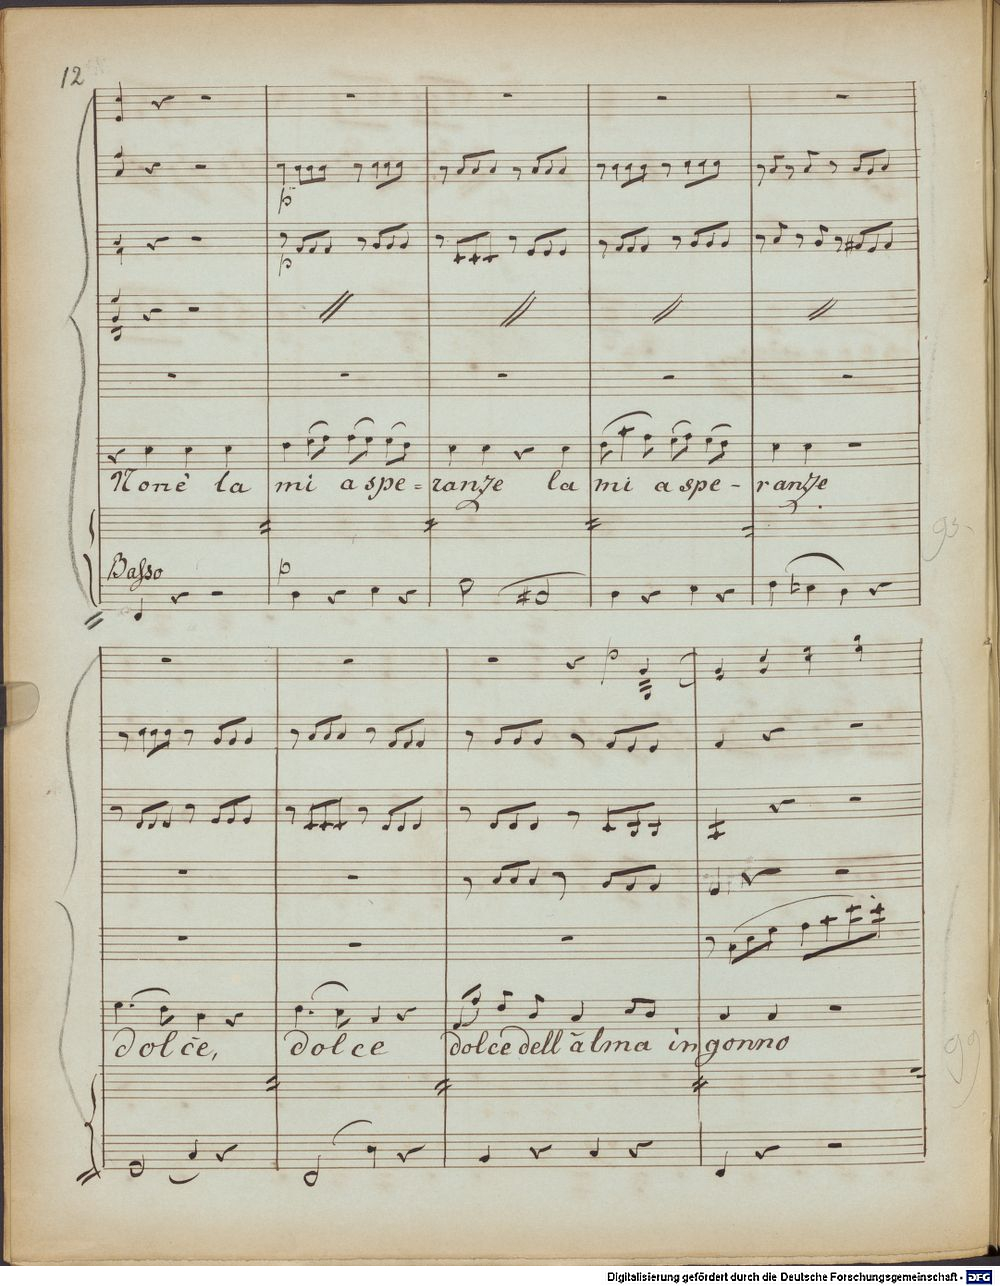 12
p
p
Non è la mi a spe = ranze la mi a spe - ranze
Basso
p
95
p
dolce, dolce dolce dell' alma ingonno
99
Digitalisierung gefördert durch die Deutsche Forschungsgemeinschaft - DFG